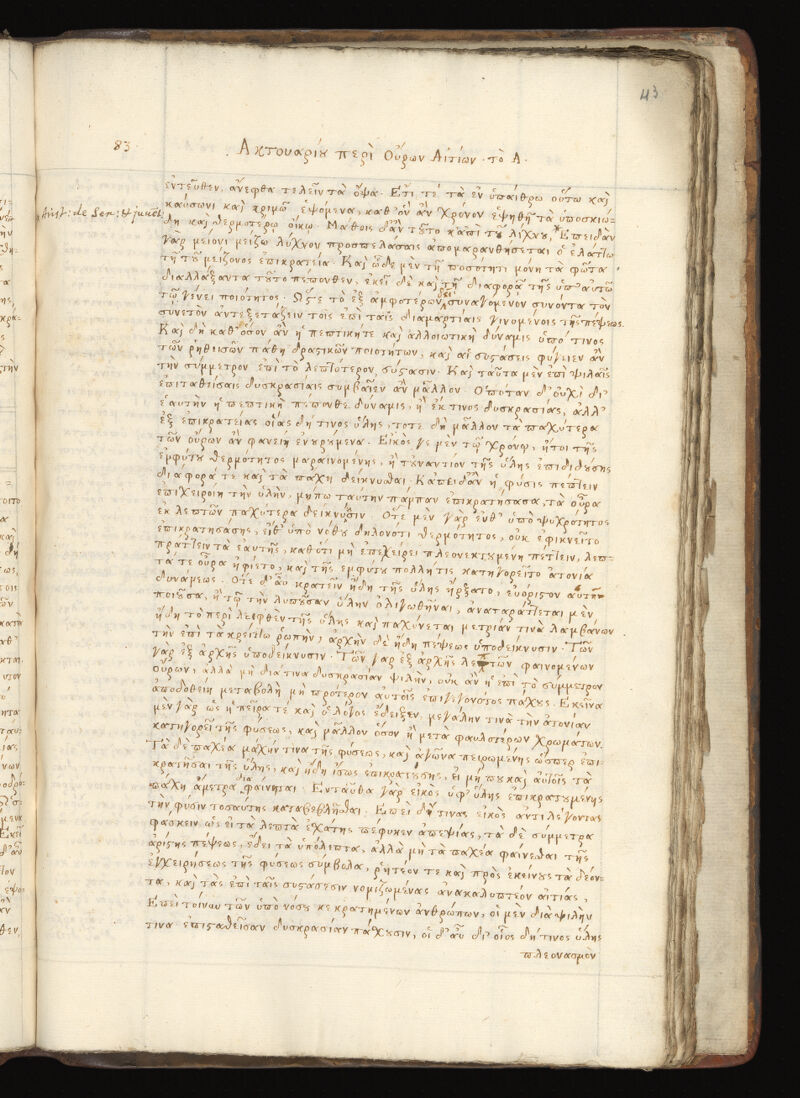 43
83
Ακτουαρίου περὶ Οὔρων Αἰτίων · τὸ Α ·
ἐντεῦθεν, ἄνεφθα τελεῖν τὰ ὄψα · Ἔτι τέ τὰ ἐν ὑπαίθρω οὕτω καὶ
Arist: de Sen: & juvet:
καύσωνι καὶ κριμῶ ἑψόμενα, καθ' ὃν ἂν χρόνον ἑψηθῆ τὰ ὑποσκίω
δη καὶ θερμοτέρω οἴκω · Μάθοις δ' ἂν τοῦτο κἀπὶ τοῦ λύχνου, Ἐπειδὰν
γὰρ μείονι μείζω λύχνον προσπελάσαις ἀπομαρανθήσεται ὁ ἐλάττω
τῆ τοῦ μείζονος ἐπικρατεία · Καὶ ὧδε μὲν τῆ ποσότητι μόνη τὰ φῶτα
διαλλάξαντα τοῦτο πέπονθεν, ἐκεῖ δὲ καὶ τῆ διαφορᾶ τῆς ὑπ' αὐτῶ
τῶ γένει ποιότητος · Ὥστε τὸ ἐξ ἀμφοτέρων δεῖ συναγόμενον συνόντα τὸν
συνετὸν ἀντεξετάζειν τοῖς ἐπὶ ταῖς διαμαρτίαις γινομένοις τῆς πέψεως.
Καὶ δὴ καθ' ὅσον ἂν ἡ πεπτική τε καὶ ἀλλοιωτικὴ δύναμις ὑπό τινος
τῶν ῥηθεισῶν πάθη δραστικῶν ποιοτήτων, καὶ αἱ συστάσεις φύγοιεν ἂν
τὴν σύμμετρον ἐπὶ τὸ λεπτότερον σύστασιν · Καὶ ταῦτα μὲν ἐπὶ ψιλαῖς
ἐπιταθείσαις δυσκρασίαις συμβαῖεν ἂν μᾶλλον · Ὁπόταν δ' οὐχὶ δι'
ἑαυτὴν ἡ πεπτικὴ πέπονθε δύναμις, ἢ ἔκ τινος δυσκρασίας, ἀλλ'
ἐξ ἐπικρατείας οἵας δή τινος ὕλης, τότε δὴ μᾶλλον τὰ παχύτερα
τῶν οὔρων ἂν φανείη ἐνουρούμενα · Εἰκός γε μὲν τῶ χρόνω, ἤτοι τῆς
ἐμφύτου θερμότητος μαραινομένης, ἢ τοὐναντίον τῆς ὕλης ἐπιδιδούσης
διάφορά τε καὶ τὰ πάχη δείκνυσθαι · Κἀπειδὰν ἡ φύσις πέττειν
ἐπιχειροίη τὴν ὕλην, μήπω ταύτην πάμπαν ἐπικρατήσασα, τὰ οὖρα
ἐκ λεπτῶν παχύτερα δείκνυσιν · Ὅτε μὲν γὰρ ἔνθ' ὑπὸ ψυχρότητος
ἐπικρατησάσης, εἴθ' ὑπὸ νόθου δηλονότι θερμότητος, οὐκ ἐφικνεῖτο
πράττειν τὰ ἑαυτῆς, καθότι μὴ ἐπεχείρει πλεονεκτουμένη πέττειν, λεπ-
τά τε οὖρα ἠφίετο, καὶ τῆς ἐμφύτου πολλή τις κατηγορεῖτο ἀτονία
δυνάμεως · Ὅτε δ' αὖ κρατεῖν ἤδη τῆς ὕλης ἤρξατο, εὐόριστον αὐτὴν
ποιοῦσα, ἢ τῶ τὴν λυποῦσαν ὕλην ὀλιγωθῆναι, ἀναταράττεται μὲν
ἤδη τὸ περὶ λειφθὲν τῆς ὕλης καὶ παχύνεται μετρίαν τινὰ λαμβάνον
τὴν ἐπὶ τὰ κρείττω ῥοπὴν, ἀρχὴν δὲ ἤδη πέψεως ὑποδείκνυσιν · Τῶν
γὰρ ἐξ ἀρχῆς ὑποδείκνυσιν · Τῶν γὰρ ἐξ ἀρχῆς λεπτῶν φαινομένων
Οὔρων, ἀλλὰ μὴ διά τινα δυσκρασίαν ψιλὴν, οὐκ ἂν ἡ ἐπὶ τὸ σύμμετρον
ἀποδοθείη μεταβολὴ μὴ πρότερον αὐτοῖς ἐπιγεγονότος πάχους · Ἐκεῖνα
μὲν γὰρ ὡς ἡ πεῖρά τε καὶ ὁ λόγος ἔδειξεν, μεγάλην τινὰ τὴν ἀτονίαν
κατηγορεῖ τῆς φύσεως, καὶ μᾶλλον ὅσον ἢ μετὰ φαυλοτέρων χρωμάτων.
Τὰ δὲ παχέα μάχην τινὰ τῆς φύσεως, καὶ ἀγῶνα πειρωμένης ὥσπερ ἐπι-
κρατῆσαι τῆς ὕλης, καὶ ἤδη ἴσως ἐπικρατούσης, εἰ μή που καὶ αὐτοῖς τὰ
πάχη ἄμετρα φαίνηται · Ἐνταῦθα γὰρ εἰκὸς ὑφ' ὕλης ἐπικρατουμένης
τὴν φύσιν τοσαύτης καταβεβλῆσθαι · Ἐπεὶ δή τινας εἰκὸς ἀντιλέγοντας
φάσκειν ὡς εἰ τὰ λεπτὰ ἐσχάτης πέφυκεν ἀπεψίας, τὰ δὲ σύμμετρα
ἀρίστης πέψεως, ἔδει τὰ ὑπόλιπτα, ἀλλὰ μὴ τὰ παχέα φαίνεσθαι τῆς
ἐγχειρήσεως τῆς φύσεως σύμβολα, ῥητέον τε καὶ πρὸς ἐκείνους τὰ δέον-
τα, καὶ τὰς ἐπὶ ταῖς συστάσεσιν νομιζομένας ἀνακαλυπτέον αἰτίας,
Ἐπεὶ τοίνυν τῶν ὑπὸ νόσου κεκρατημένων ἀνθρώπων, οἱ μὲν διὰ ψιλὴν
τινα ἐπισταθεῖσαν δυσκρασίαν πάσχουσιν, οἱ δ' αὖ δι' οἵας δή τινος ὕλης
πλεονασμὸν